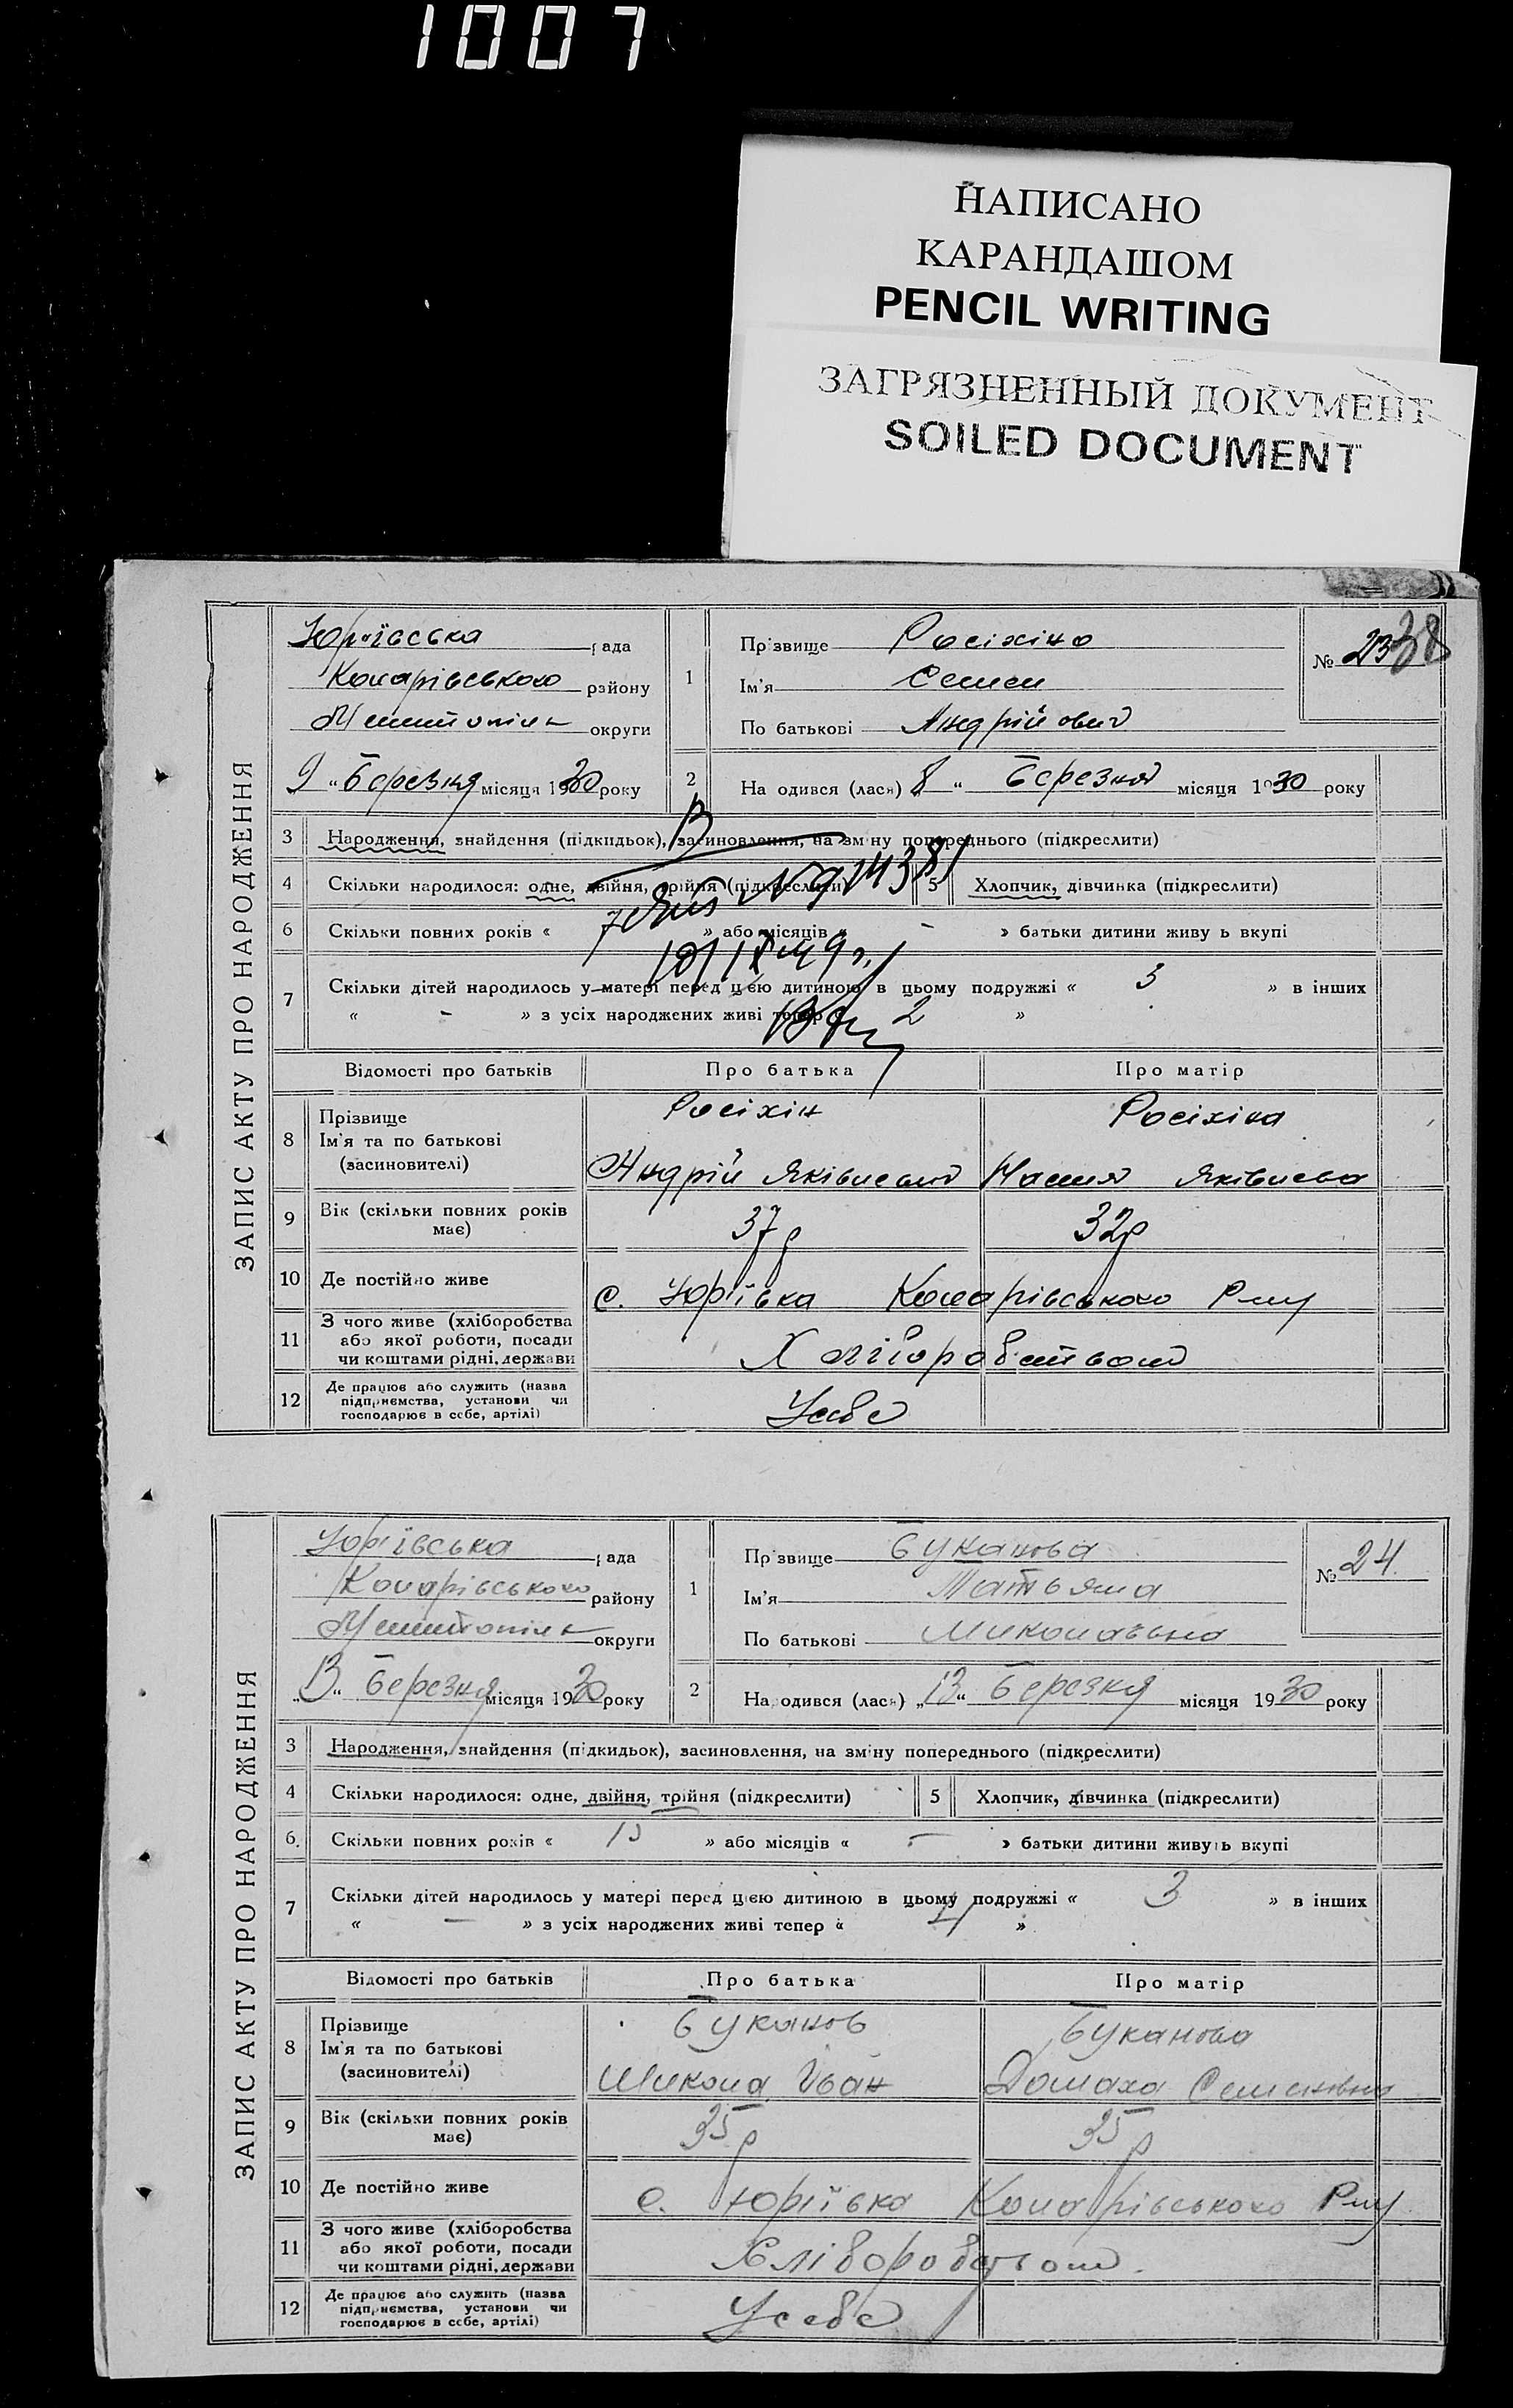 1007
НАПИСАНО
КАРАНДАШОМ
PENCIL WRITING
ЗАГРЯЗНЕННЫЙ ДОКУМЕНТ
SOILED DOCUMENT
ЗАПИС АКТУ ПРО НАРОДЖЕННЯ
Юріївська рада
району
округи
9 " Березня місяця 1930 року
1 Прізвище Росіхіно
Ім'я Семен
По батькові Андрійович
№ 23 38
2 Народився (лася) „ 8 " Березня місяця 1930 року
3 Народження, знайдення (підкидьок), засиновлення, на зміну попереднього (підкреслити)
4 Скільки народилося: одне, двійня, трійня (підкреслити)
5 Хлопчик, дівчинка (підкреслити)
6 Скільки повних років « » або місяців « - » батьки дитини живуть вкупі
7 Скільки дітей народилось у матері перед цією дитиною в цьому подружжі « 3 » в інших
« - » з усіх народжених живі тепер « 2 »
Відомості про батьків Про батька Про матір
8 Прізвище
Ім'я та по батькові
(засновителі)
Росіхін
Андрій Яківлевич
Росіхіна
Яківлева
9 Вік (скільки повних років
має)
37 р
32 р
10 Де постійно живе с. Юріївка
11 З чого живе (хліборобства
або якої роботи, посади
чи коштами рідні, держави
12 Де працює або служить (назва
підприємства, установи чи
господарює в себе, артілі)
Усебе
ЗАПИС АКТУ ПРО НАРОДЖЕННЯ
Юріївська рада
району
округи
„ 13 " Березня місяця 1930 року
1 Прізвище Буканова
Ім'я Татьяна
По батькові Миколавьна
№ 24
2 Народився (лася) „ 13 " Березня місяця 1930 року
3 Народження, знайдення (підкидьок), засиновлення, на зміну попереднього (підкреслити)
4 Скільки народилося: одне, двійня, трійня (підкреслити)
5 Хлопчик, дівчинка (підкреслити)
6. Скільки повних років « » або місяців « - » батьки дитини живуть вкупі
7 Скільки дітей народилось у матері перед цією дитиною в цьому подружжі « 3 » в інших
« - » з усіх народжених живі тепер « »
Відомості про батьків Про батька Про матір
8 Прізвище
Ім'я та по батькові
(засиновителі)
Буканов
Микола Іван
Буканова
Домаха Семенівна
9 Вік (скільки повних років
має)
35 р
35 р
10 Де постійно живе с. Юріївка
11 З чого живе (хліборобства
або якої роботи, посади
чи коштами рідні, держави
Хліборобством
12 Де працює або служить (назва
підприємства, установи чи
господарює в себе, артілі)
Усебе